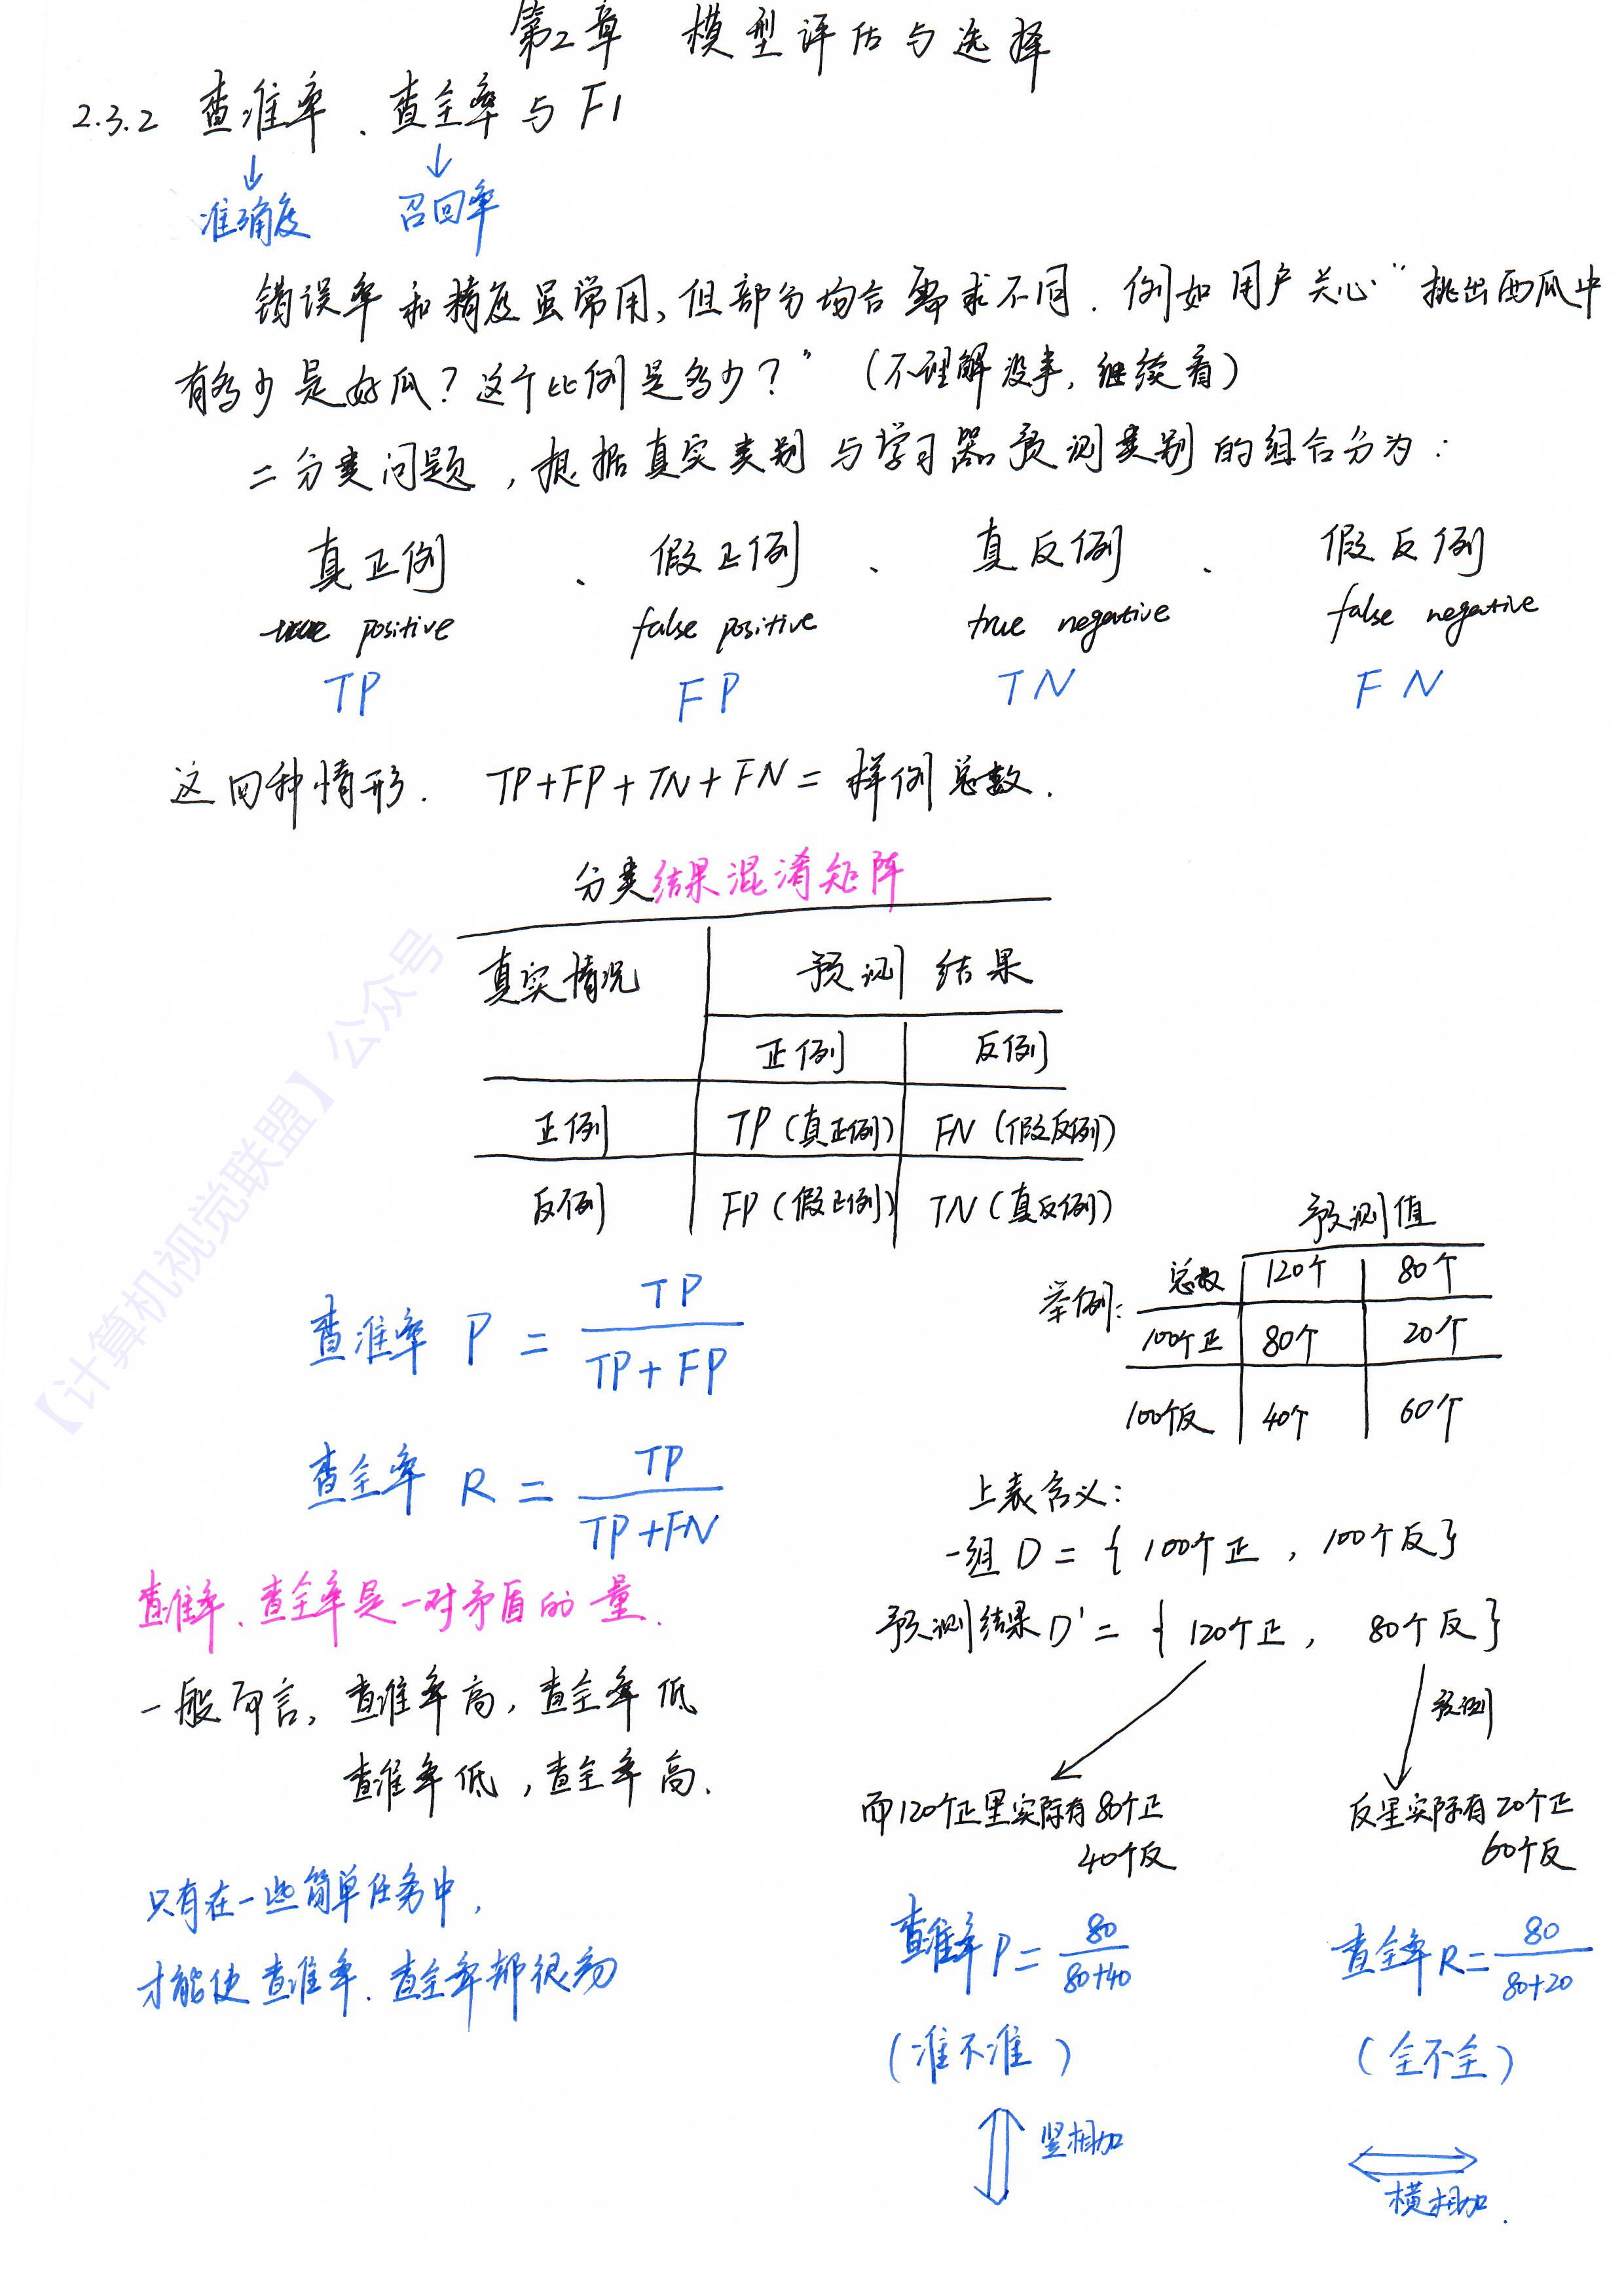 第2章 模型评估与选择
2.3.2 查准率、查全率与F1
↓ ↓
准确度 召回率
错误率和精度虽常用,但部分场合需求不同.例如用户关心"挑出西瓜中
有多少是好瓜?这个比例是多少?"(不理解没事,继续看)
二分类问题,根据真实类别与学习器预测类别的组合分为:
真正例、假正例、真反例、假反例
true positive false positive true negative false negative
TP FP TN FN
这四种情形. TP+FP+TN+FN=样例总数.
分类结果混淆矩阵
真实情况 预测结果
正例 反例
正例 TP(真正例) FN(假反例)
反例 FP(假正例) TN(真反例)
查准率 P = TP / TP+FP
查全率 R = TP / TP+FN
查准率、查全率是一对矛盾的量.
一般而言,查准率高,查全率低
查准率低,查全率高.
只有在一些简单任务中,
才能使查准率、查全率都很高
预测值
举例: 总数 120个 80个
100个正 80个 20个
100个反 40个 60个
上表含义:
一组D={100个正,100个反}
预测结果D'={120个正, 80个反}
预测
而120个正里实际有80个正
40个反
反里实际有20个正
60个反
查准率P= 80 / 80+40
(准不准)
竖相加
查全率R= 80 / 80+20
(全不全)
横相加.
【计算机视觉联盟】公众号